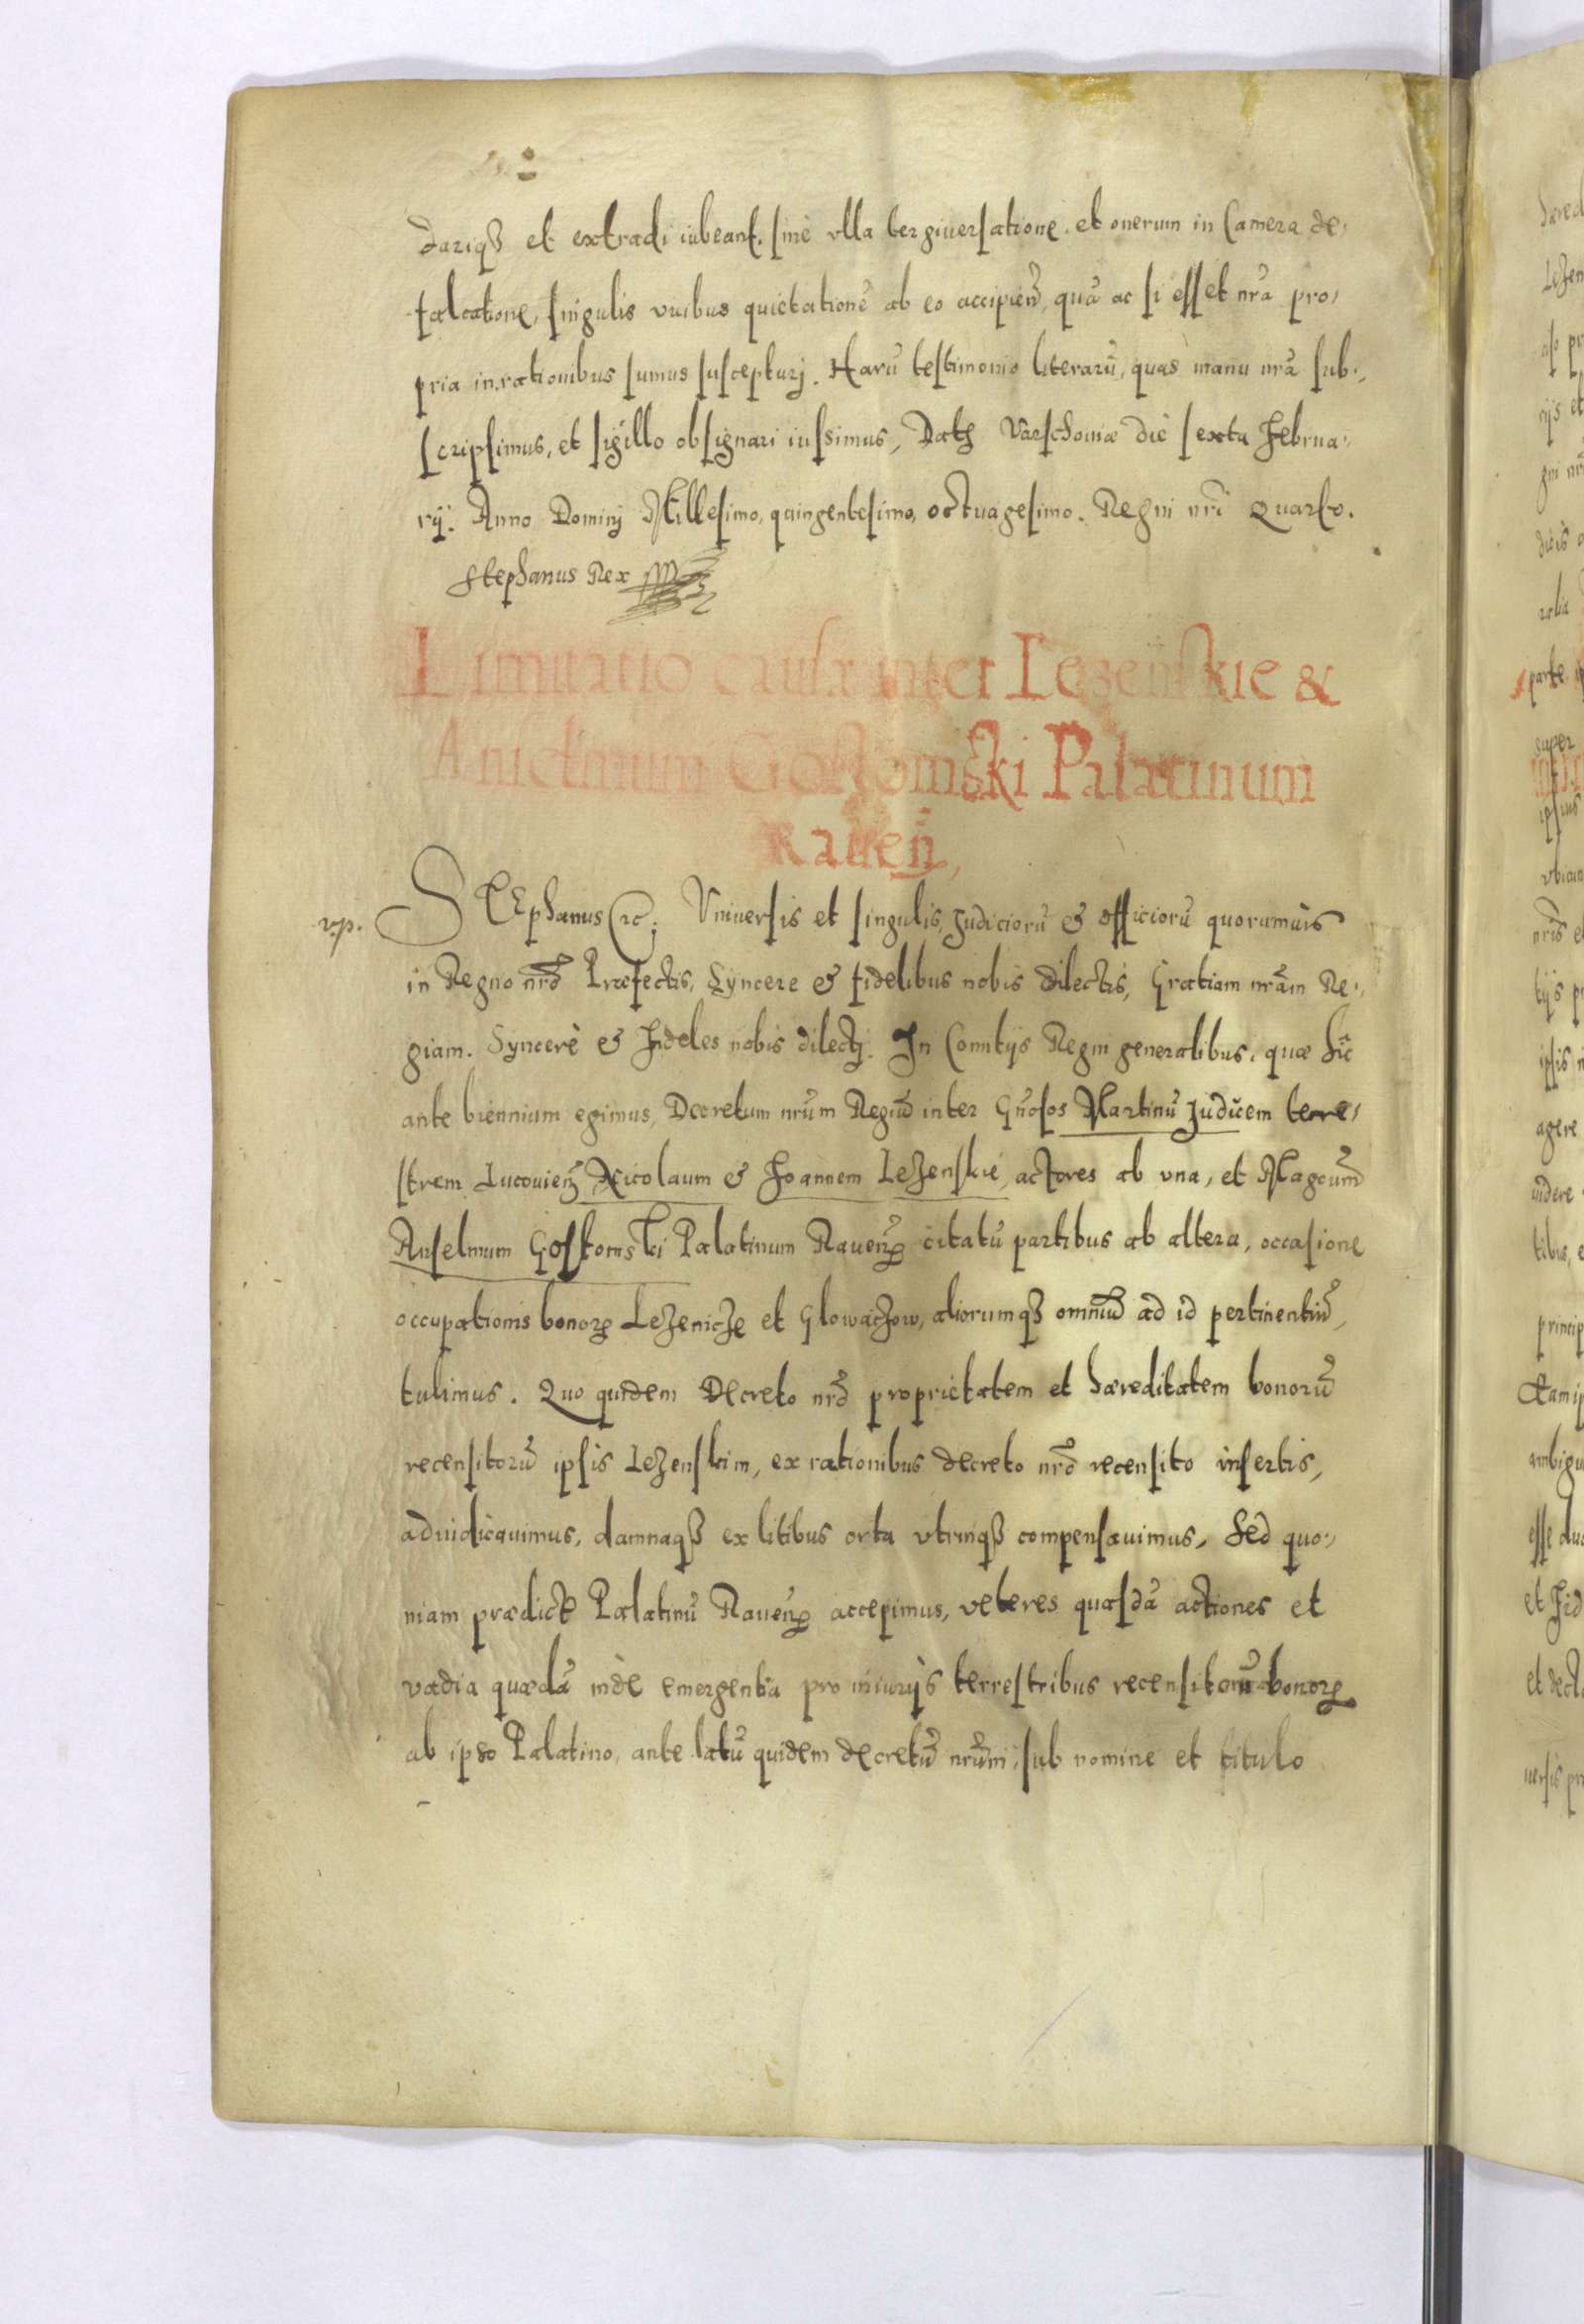 dariqȝ et extradi iubeant, sinè vlla tergiuersatione. et onerum in Camera de-
falcatione, singulis vicibus quietationẽ ab eo accipieñ, quã ac si esset nr̃a pro-
pria in rationibus sumus suscepturj. Harũ testimonio literarũ, quas manu nr̃a sub-
scripsimus, et sigillo obsignari iussimus, Datꝭ Varschouiæ diè sexta Februa-
rij. Anno Dominj Millesimo, quingentesimo, octuagesimo. Regni nr̃i Quarto.
Stephanus Rex
Limitatio causæ inter Lezenskie &
Anselmum Gostomski Palatinum
Raueñ,
v.p.
STEphanus etc; Vniuersis et singulis, Judiciorũ & officiorũ quorumuis
in Regno nr̃o Præfectis, Syncere & fidelibus nobis dilectis, Gratiam nr̃am Re-
giam. Syncerè & Fideles nobis dilectj. In Comitijs Regni generalibus, quæ hic
ante biennium egimus, Decretum nr̃um Regiũ inter Gñosos Martinũ Judicem terre-
strem Lucouieñ Nicolaum & Joannem Lezenskie, actores ab vna, et Magcum̃
Anselmum Gostomski Palatinum Raueñ citatũ partibus ab altera, occasione
occupationis bonorꝝ Lezenicze et Glowaczow, aliorumqȝ omniũ ad id pertinentiũ,
tulimus. Quo quidem Decreto nr̃o proprietatem et hæreditatem bonorũ
recensitorũ ipsis Lezenskim, ex rationibus decreto nr̃o recensito insertis,
adiudicauimus, damnaqȝ ex litibus orta vtrinqȝ compensauimus, Sed quo-
niam prædictꝭ Palatinũ Raueñ accepimus, veteres quasdã actiones et
vadia quædã inde emergentia pro iniurijs terrestribus recensitorũ bonorꝝ
ab ipso Palatino, ante latũ quidem decretũ nr̃um, sub nomine et titulo